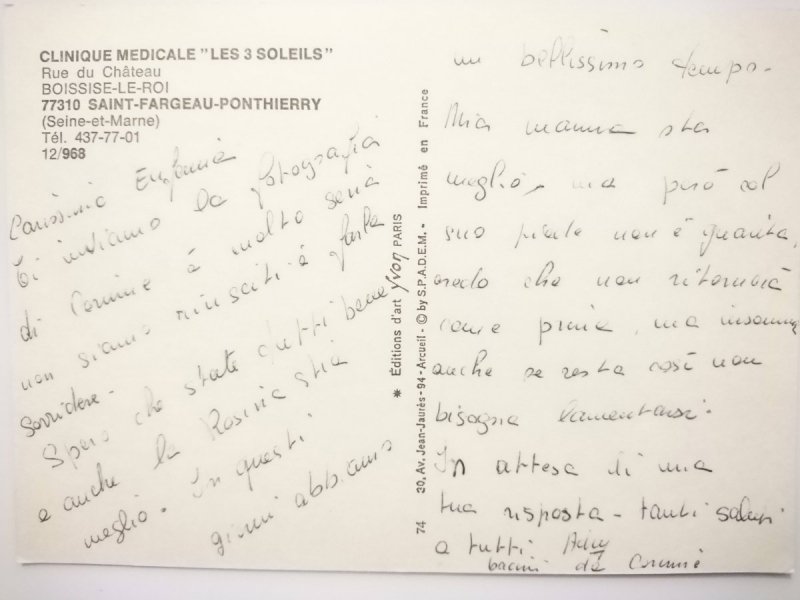 CLINIQUE MEDICALE "LES 3 SOLEILS"
Rue du Château
BOISSISE-LE-ROI
77310 SAINT-FARGEAU-PONTHIERRY
(Seine-et-Marne)
Tél. 437-77-01
12/968
Carissima Eugenia
ti inviamo la fotografia
di Corinne è molto seria
non siamo riusciti a farla
sorridere.
Spero che state tutti bene
e anche la Rosina stia
meglio. In questi
giorni abbiamo
* Éditions d'art yvon PARIS
74 30, Av. Jean-Jaurès - 94 - Arcueil - © by S.P.A.D.E.M. - Imprimé en France
un bellissimo tempo.
Mia mamma sta
meglio, ma però col
suo piede non è guarita,
credo che non ritornerà
come prima, ma insomma
anche se resta così non
bisogna lamentarsi.
In attesa di una
tua risposta - tanti saluti
a tutti
bacini da Corinne